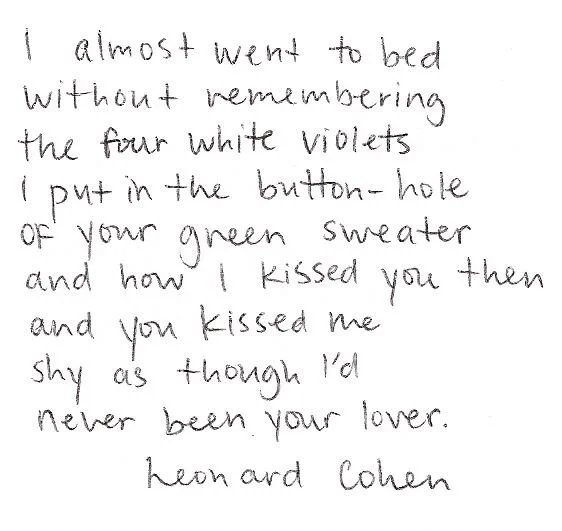 I almost went to bed
without remembering
the four white violets
I put in the button-hole
of your green sweater
and how I kissed you then
and you kissed me
shy as though I'd
never been your lover.
Leonard Cohen